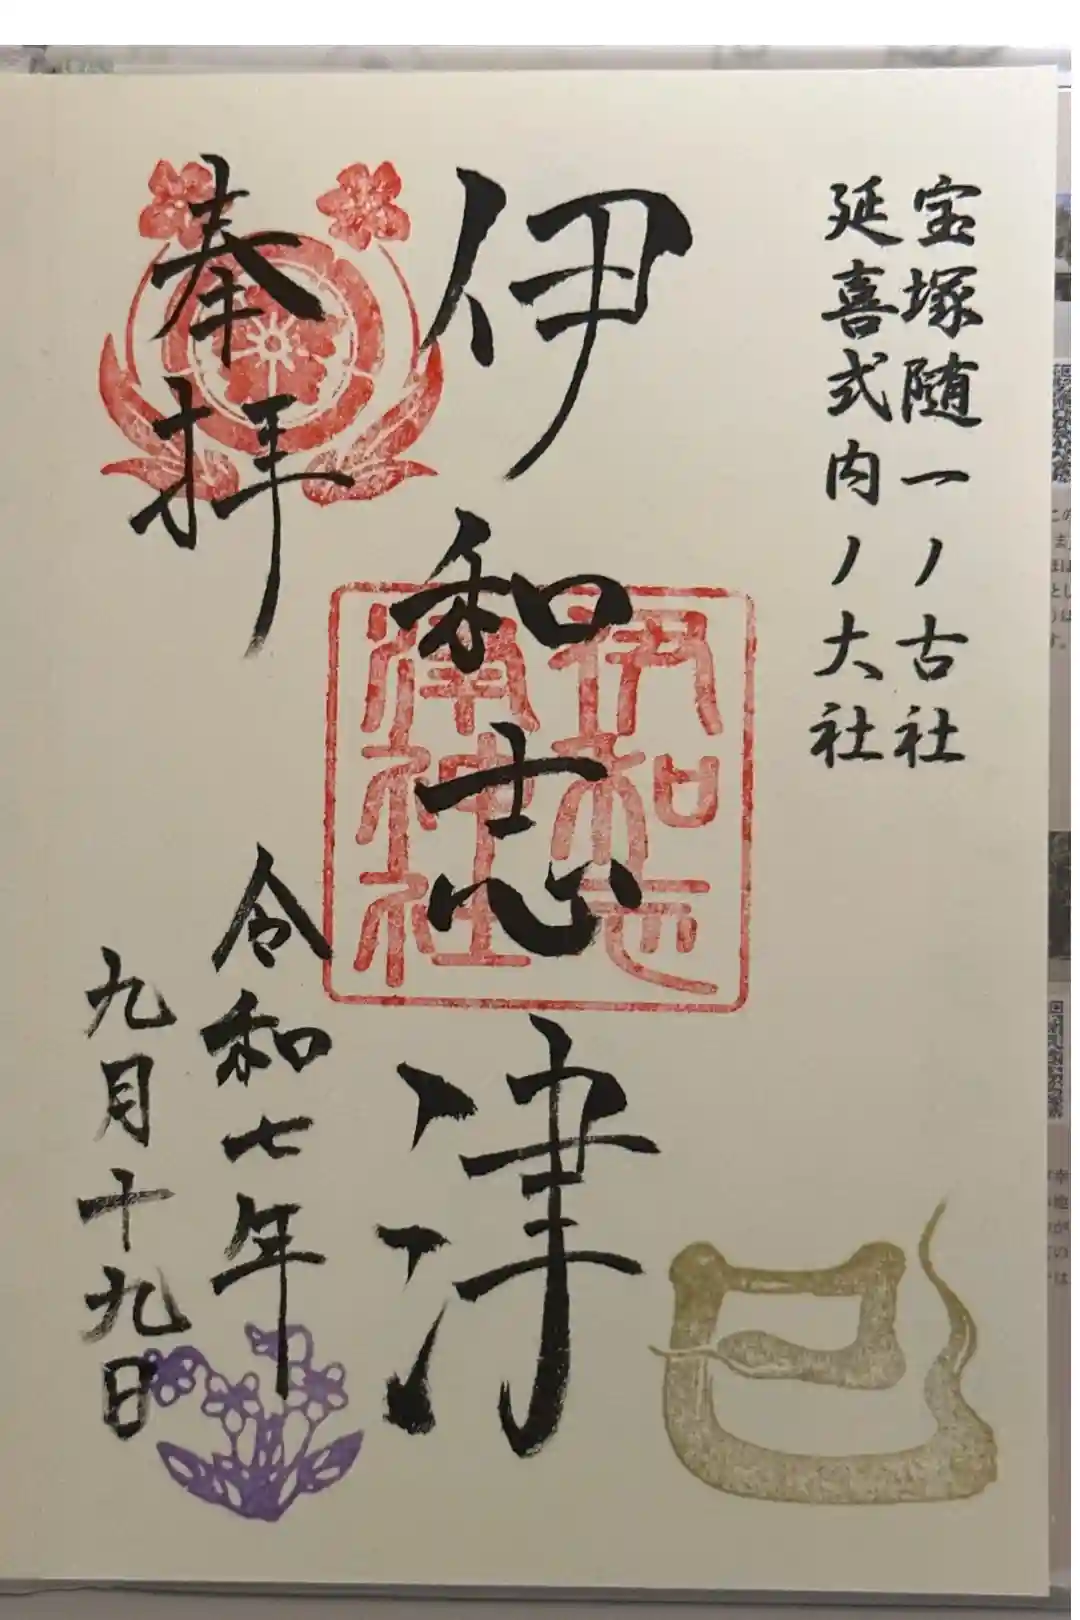 宝塚随一ノ古社
延喜式内ノ大社
伊和志津
伊和志
津神社
奉拝
令和七年
九月十九日
巳